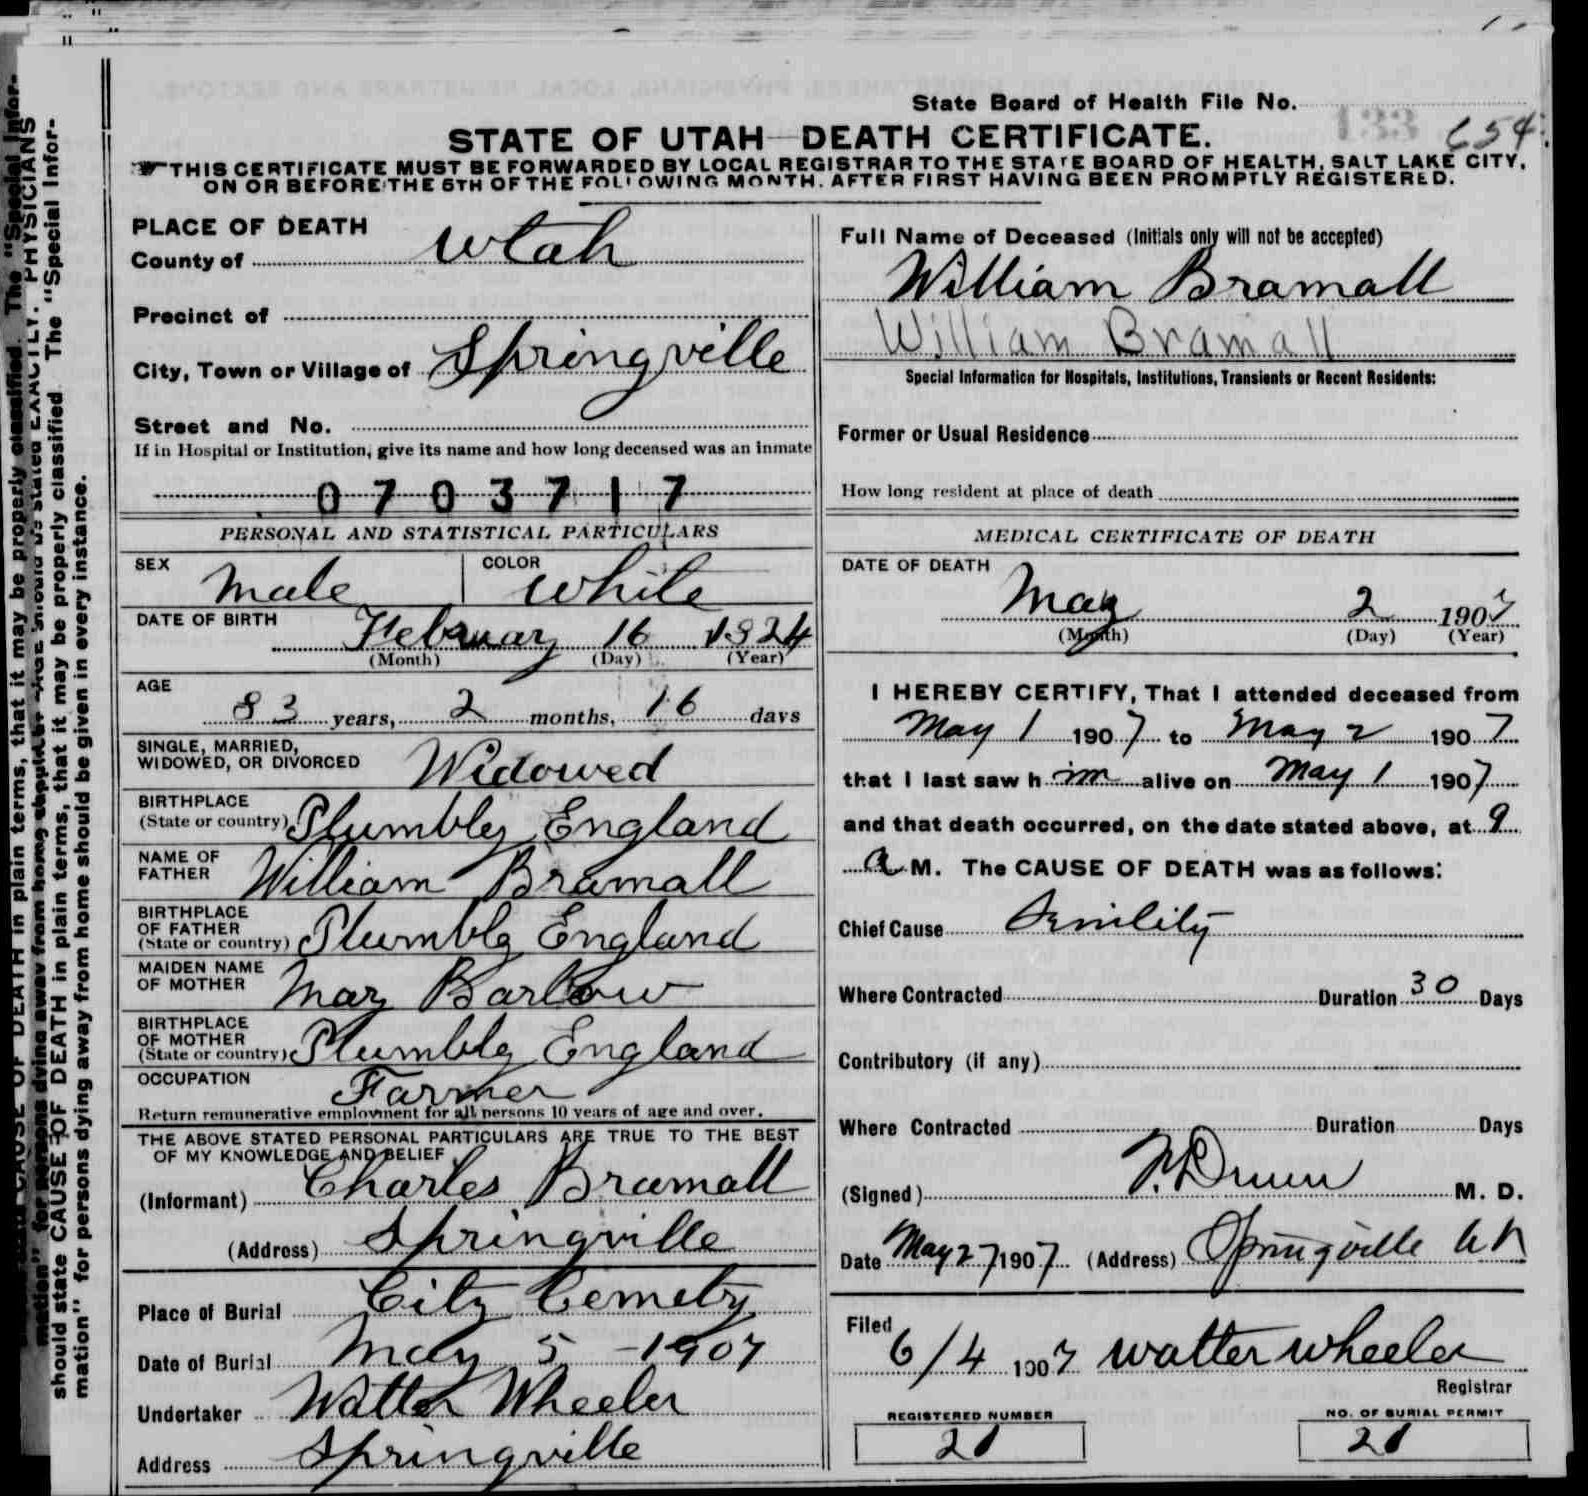 State Board of Health File No. 133 654
STATE OF UTAH—DEATH CERTIFICATE.
THIS CERTIFICATE MUST BE FORWARDED BY LOCAL REGISTRAR TO THE STATE BOARD OF HEALTH, SALT LAKE CITY,
ON OR BEFORE THE 5TH OF THE FOLLOWING MONTH, AFTER FIRST HAVING BEEN PROMPTLY REGISTERED.
PLACE OF DEATH
County of Utah
Precinct of
City, Town or Village of Springville
Street and No.
If in Hospital or Institution, give its name and how long deceased was an inmate
0703717
PERSONAL AND STATISTICAL PARTICULARS
SEX Male COLOR White
DATE OF BIRTH February 16 1824
(Month) (Day) (Year)
AGE
83 years, 2 months, 16 days
SINGLE, MARRIED,
WIDOWED, OR DIVORCED Widowed
BIRTHPLACE
(State or country) Plumbly England
NAME OF
FATHER William Bramall
BIRTHPLACE
OF FATHER
(State or country) Plumbly England
MAIDEN NAME
OF MOTHER Mary Barlow
BIRTHPLACE
OF MOTHER
(State or country) Plumbly England
OCCUPATION Farmer
Return remunerative employment for all persons 10 years of age and over.
THE ABOVE STATED PERSONAL PARTICULARS ARE TRUE TO THE BEST
OF MY KNOWLEDGE AND BELIEF
(Informant) Charles Bramall
(Address) Springville
Place of Burial City Cemetry
Date of Burial May 5 - 1907
Undertaker Walter Wheeler
Address Springville
Full Name of Deceased (Initials only will not be accepted)
William Bramall
William Bramall
Special Information for Hospitals, Institutions, Transients or Recent Residents:
Former or Usual Residence
How long resident at place of death
MEDICAL CERTIFICATE OF DEATH
DATE OF DEATH
May 2 1907
(Month) (Day) (Year)
I HEREBY CERTIFY, That I attended deceased from
May 1 1907 to May 2 1907
that I last saw h im alive on May 1 1907
and that death occurred, on the date stated above, at 9
a M. The CAUSE OF DEATH was as follows:
Chief Cause Senility
Where Contracted Duration 30 Days
Contributory (if any)
Where Contracted Duration Days
(Signed) F. Dunn M. D.
Date May 27 1907 (Address) Springville Ut
Filed
6/4 1907 Walter Wheeler
Registrar
REGISTERED NUMBER
21
NO. OF BURIAL PERMIT
21
should state CAUSE OF DEATH in plain terms, that it may be properly classified The "Special Infor-
mation" for persons dying away from home should be given in every instance.